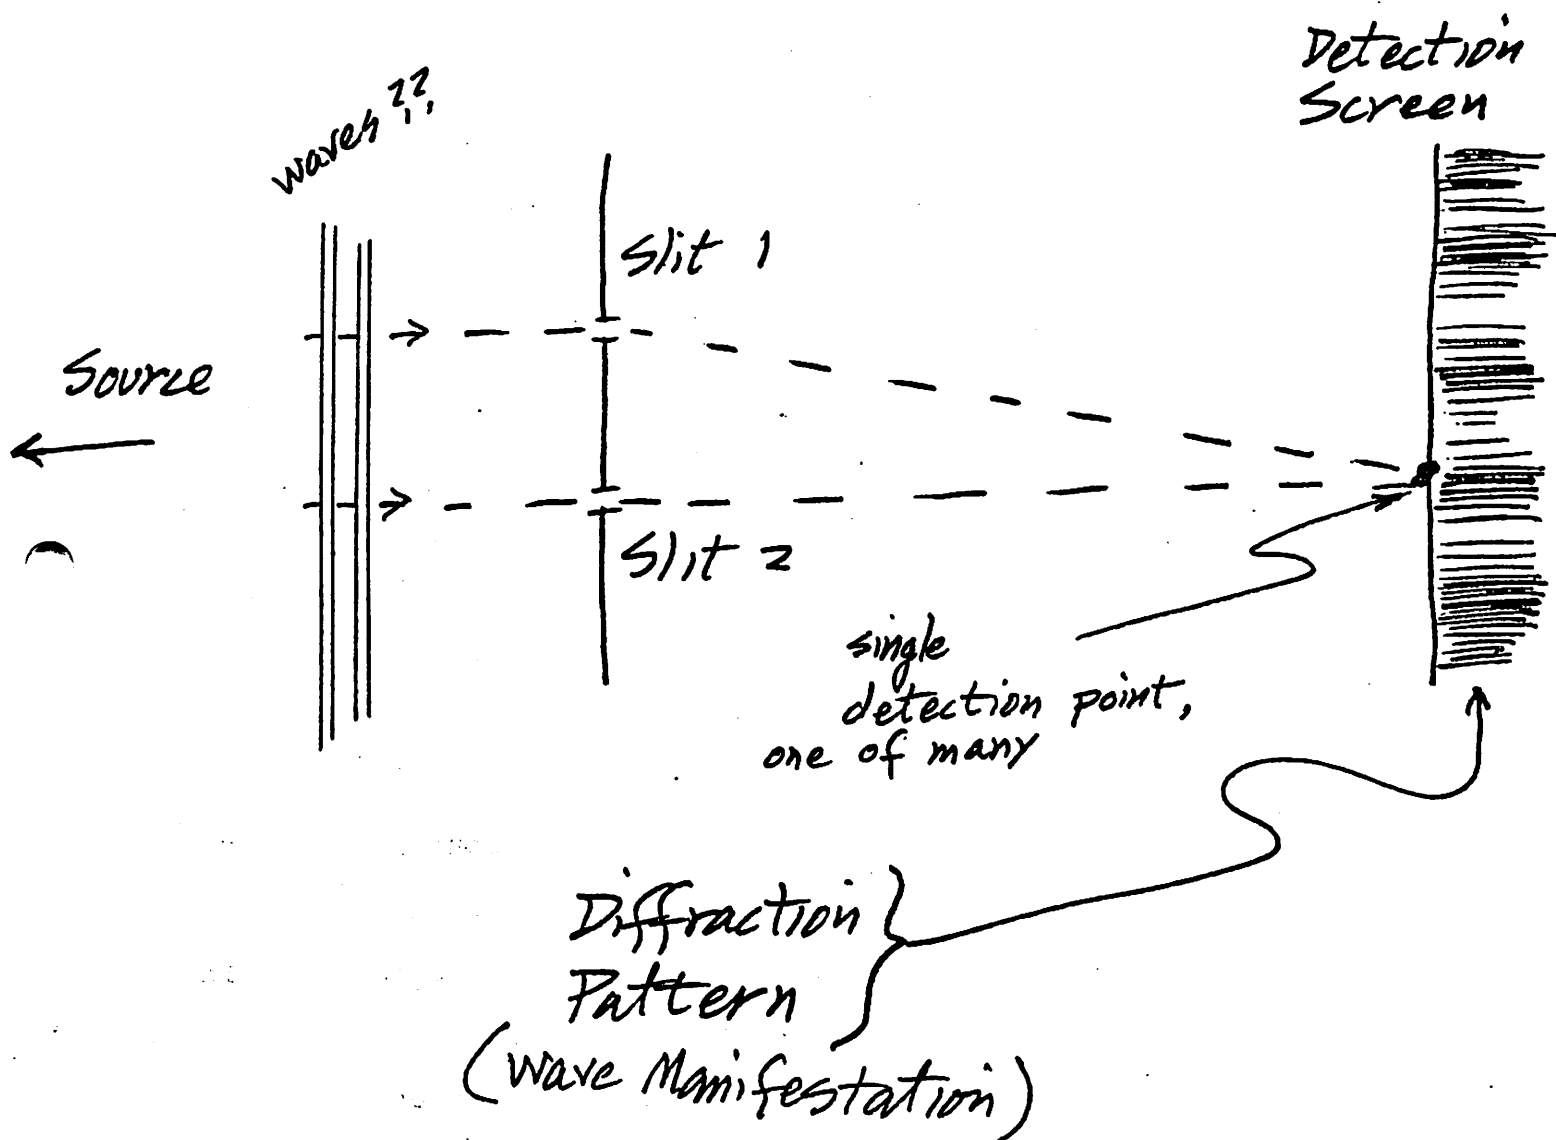 Detection
Screen
waves ??
Slit 1
Source
Slit 2
single
detection point,
one of many
Diffraction
Pattern
(Wave Manifestation)